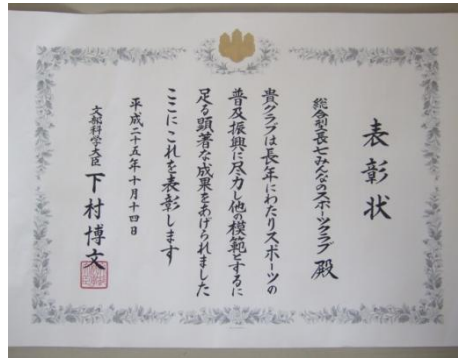 表彰状
総合型長七みんなのスポーツクラブ 殿
貴クラブは長年にわたりスポーツの
普及振興に尽力し他の模範とするに
足る顕著な成果をあげられました
ここにこれを表彰します
平成二十五年十月十四日
文部科学大臣 下村博文